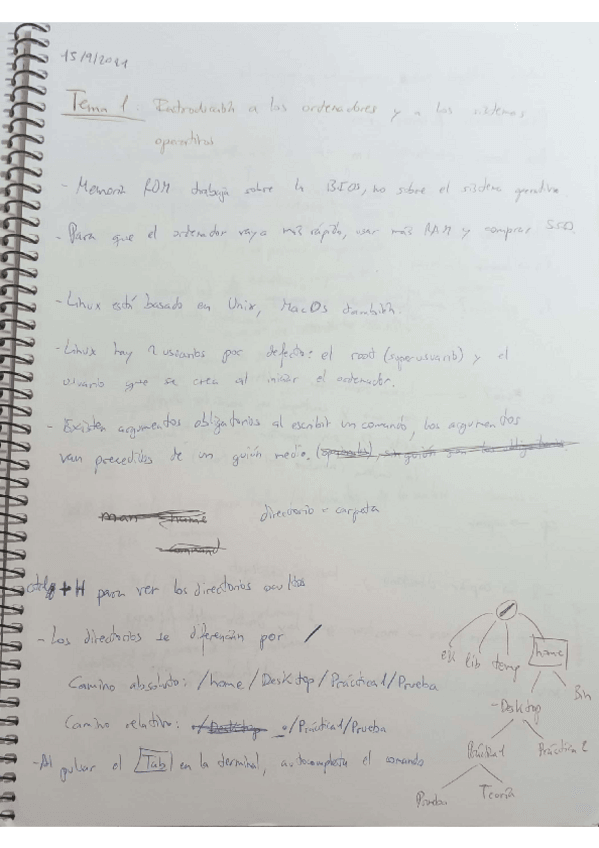 15/9/2021
Tema 1: Introducción a los ordenadores y a los sistemas
operativos
- Memoria ROM trabaja sobre la BIOS, no sobre el sistema operativo
- Para que el ordenador vaya más rápido, usar más RAM y comprar SSD.
- Linux está basado en Unix, MacOs también.
- Linux hay 2 usuarios por defecto: el root (superusuario) y el
usuario que se crea al iniciar el ordenador.
- Existen argumentos obligatorios al escribir un comando, los argumentos
van precedidos de un guión medio.
man home
directorio = carpeta
command
ctrl + H para ver los directorios ocultos
- Los directorios se diferencian por /
Camino absoluto: /home/Desktop/Práctica1/Prueba
Camino relativo: ./Desktop ./Práctica1/Prueba
- Al pulsar el Tab en la terminal, autocompleta el comando
/
lib temp home
Desktop Bin
Práctica1 Práctica 2
Prueba Teoría